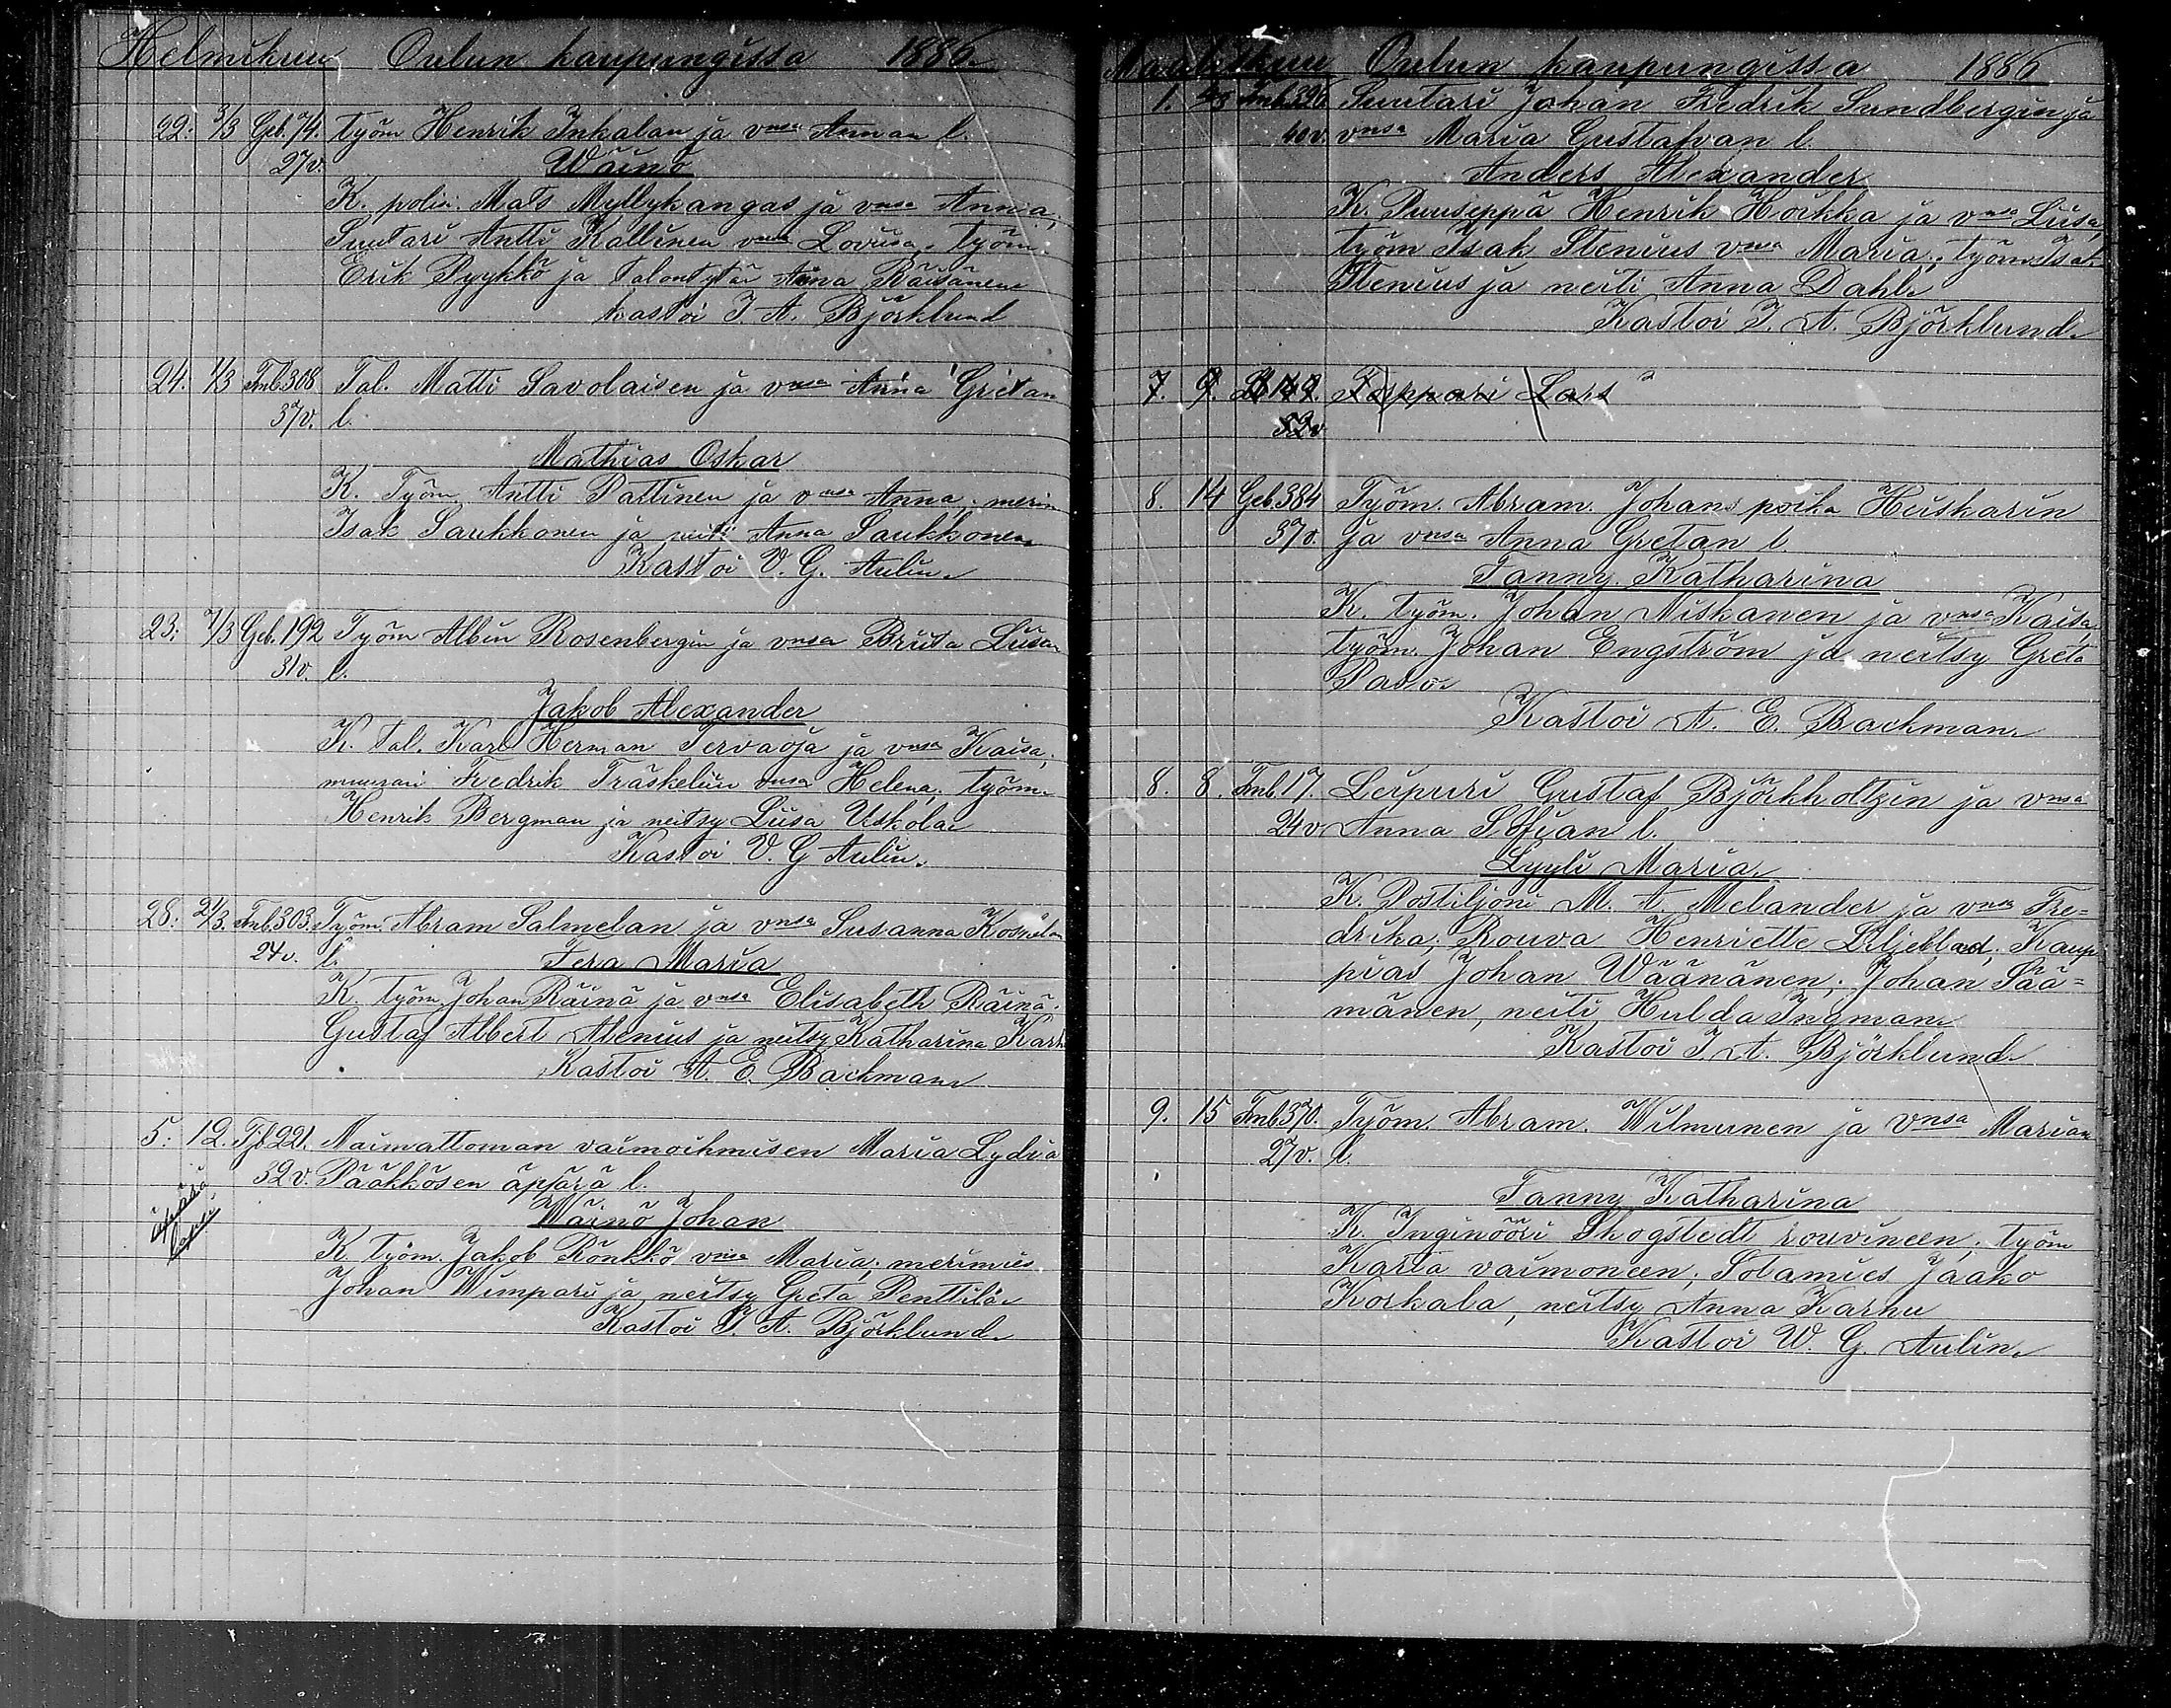 Helmikuu Oulun kaupungissa 1886.
22. 3/3 Geb. 74. Työm Henrik Inkalan ja vnsa Annan l.
27v. Wäinö
K. polis. Mats Myllykangas ja vnsa Anna;
Suutari Antti Kallinen vnsa Lovisa; työm.
Erik Pyykkö ja talontytär Anna Räisänen
kastoi J. A. Björklund
24. 1/3 Tmb 308 Tal. Matti Savolaisen ja vnsa Anna Gretan
37v. l.
Mathias Oskar
K. Työm. Antti Pattinen ja vnsa Anna; merim
Isak Saukkonen ja neiti Anna Saukkonen
Kastoi V. G. Aulin.
23: 7/3 Geb. 192 Työm Albin Rosenbergin ja vnsa Briita Liisan
31v. l.
Jakob Alexander
K. tal. Karl Herman Tervaoja ja vnsa Kaisa;
muurari Fredrik Träskelin vnsa Helena; työm.
Henrik Bergman ja neitsy Liisa Uskola
Kastoi V. G Aulin.
28: 21/3. Tmb. 303. Työm. Abram Salmelan ja vnsa Susanna
24v. l. Fera Maria
K. työm Johan Räinä ja vnsa Elisabeth Räinä;
Gustaf Albert Alenius ja neitsy Katharina
Kastoi A. E. Bachman
5: 12. Tjb 221. Naimattoman vaimoihmisen Maria Lydia
32v. Pääkkösen äpärä l.
äpärä
lapsi
Wäinö Johan
K. työm. Jakob Rönkkö vnsa Maria; merimies
Johan Wimpari ja neitsy Greta Penttilä
Kastoi J. A. Björklund.
Maaliskuu Oulun kaupungissa 1886
1. Tmb 396 Suutari Johan Fredrik Sundbergin ja
40v. vnsa Maria Gustafvan l.
Anders Alexander
K. Puuseppä Henrik Hoikka ja vnsa Liisa;
työm Isak Stenius vnsa Maria; työm Isak
Stenius ja neiti Anna Dahl.
Kastoi J. A. Björklund.
7. 9. 149. Torppari Lars
52v
8. 14 Geb. 384 Työm. Abram Johans poika Heiskarin
37v. ja vnsa Anna Gretan l.
Fanny Katharina
K. työm. Johan Niskanen ja vnsa Kaisa;
työm. Johan Engström ja neitsy Greta
Paso.
Kastoi A. E. Bachman.
8. 8. Tmb 17. Leipuri Gustaf Björkholtzin ja vnsa
24v Anna Sofian l.
Lyyli Maria.
K. Postiljoni M. A. Melander ja vnsa Fre=
drika; Rouva Henriette Liljeblad; Kaup
pias Johan Wäänänen; Johan Sää=
mänen, neiti Hulda Ingman.
Kastoi J. A. Björklund.
9. 15 Tmb 370. Työm. Abram. Wilmunen ja Vnsa Marian
27v. l.
Fanny Katharina
K. Inginööri Skogstedt rouvineen; työm
Karta vaimoneen; Sotamies Jaako
Korkala, neitsy Anna Karhu
Kastoi W. G. Aulin.